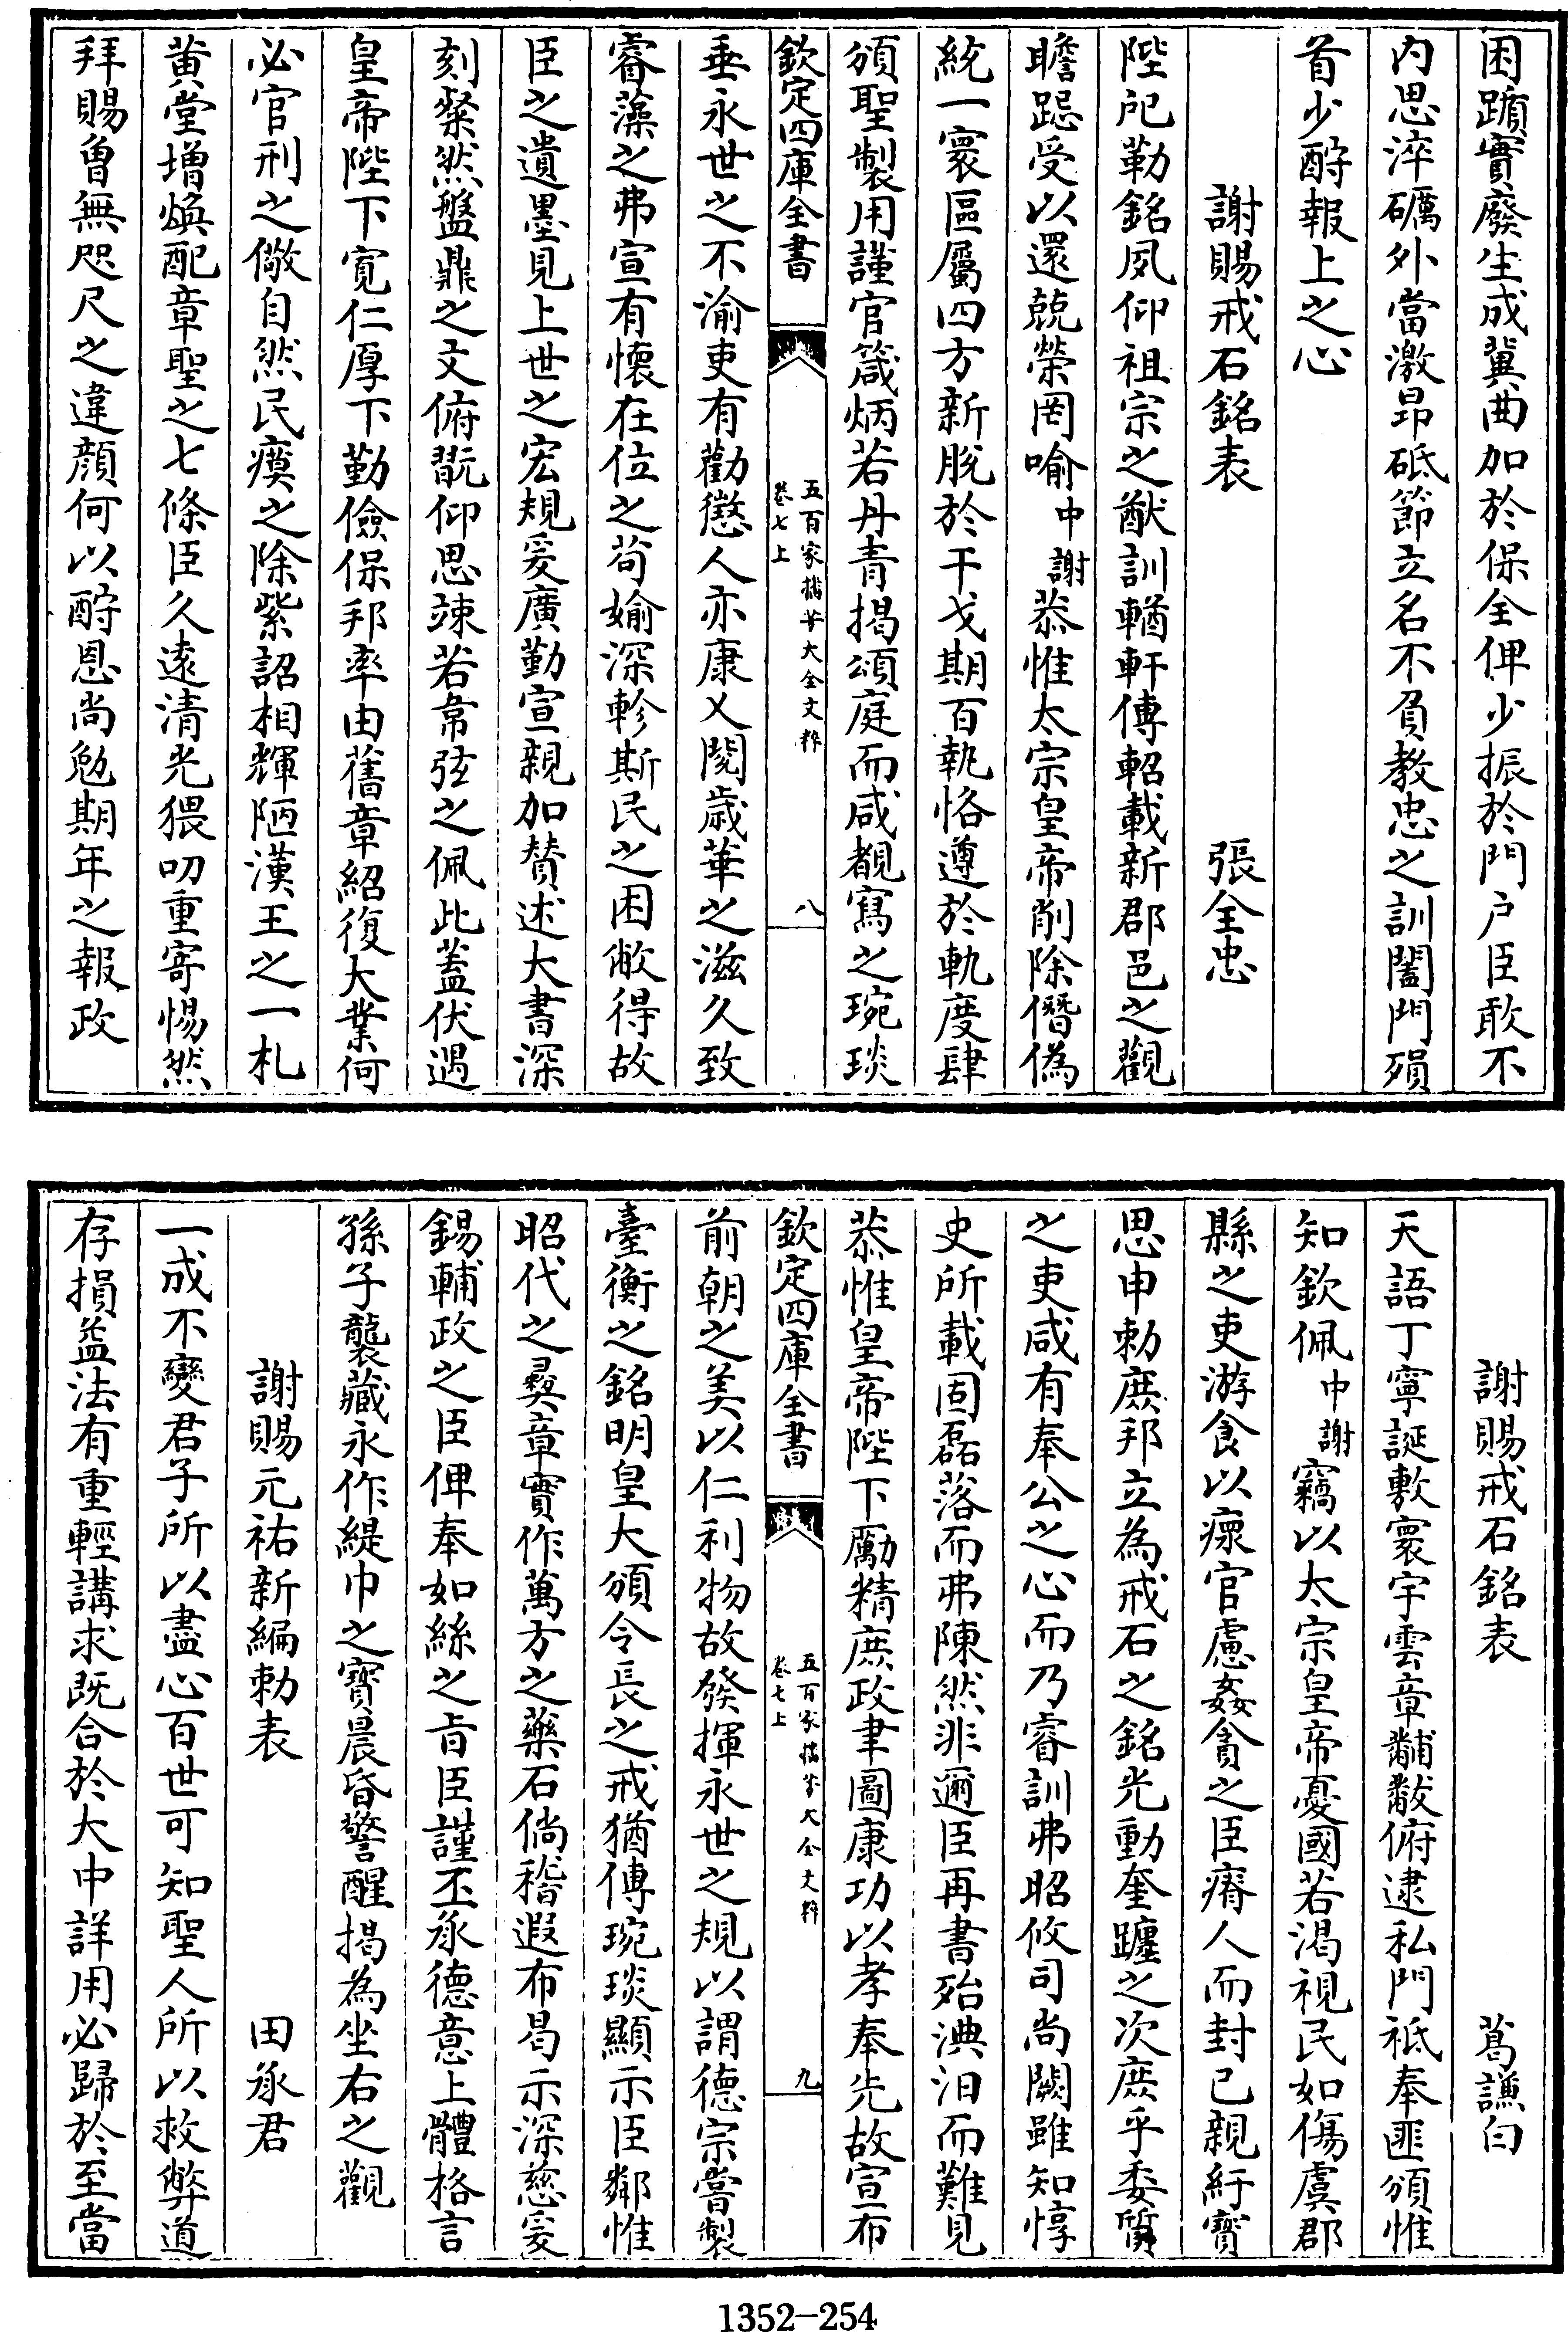 困躓實廢生成冀曲加於保全俾少振於門户臣敢不
内思淬礪外當激昂砥節立名不負教忠之訓闔門殞
首少酧報上之心
謝賜戒石銘表　張全忠
陛戺勒銘夙仰祖宗之猷訓輶軒傳軺載新郡邑之觀
瞻跽受以還兢榮罔喻中謝恭惟太宗皇帝削除僭偽
統一寰區屬四方新脱於干戈期百執恪遵於軌度肆
頒聖製用謹官箴炳若丹青揭頌庭而咸覩寫之琬琰
欽定四庫全書　五百家播芳大全文粹　卷七上　八
垂永世之不渝吏有勸懲人亦康乂閲歲華之滋久致
睿藻之弗宣有懷在位之苟媮深軫斯民之困敝得故
臣之遺墨見上世之宏規爰廣勤宣親加賛述大書深
刻粲然盤鼎之文俯翫仰思竦若韋弦之佩此蓋伏遇
皇帝陛下寛仁厚下勤儉保邦率由舊章紹復大業何
必官刑之儆自然民瘼之除紫詔相輝陋漢王之一札
黄堂增煥配章聖之七條臣久逺清光猥叨重寄惕然
拜賜曾無咫尺之違顔何以酧恩尚勉期年之報政
謝賜戒石銘表　葛謙白
天語丁寧誕敷寰宇雲章黼黻俯逮私門祗奉匪頒惟
知欽佩中謝竊以太宗皇帝憂國若渴視民如傷虞郡
縣之吏游食以瘝官慮姦貪之臣瘠人而封已親紆寳
思申勅庶邦立為戒石之銘光動奎躔之次庶乎委質
之吏咸有奉公之心而乃睿訓弗昭攸司尚闕雖知惇
史所載固磊落而弗陳然非邇臣再書殆淟汩而難見
恭惟皇帝陛下勵精庶政聿圖康功以孝奉先故宣布
欽定四庫全書　五百家播芳大全文粹　卷七上　九
前朝之美以仁利物故發揮永世之規以謂德宗嘗製
臺衡之銘明皇大頒令長之戒猶傳琬琰顯示臣鄰惟
昭代之彛章實作萬方之藥石倘稽遐布曷示深慈爰
錫輔政之臣俾奉如絲之旨臣謹丕承德意上體格言
孫子襲藏永作緹巾之寳晨昏警醒揭為坐右之觀
謝賜元祐新編勅表　田承君
一成不變君子所以盡心百世可知聖人所以救弊道
存損益法有重輕講求既合於大中詳用必歸於至當
1352-254